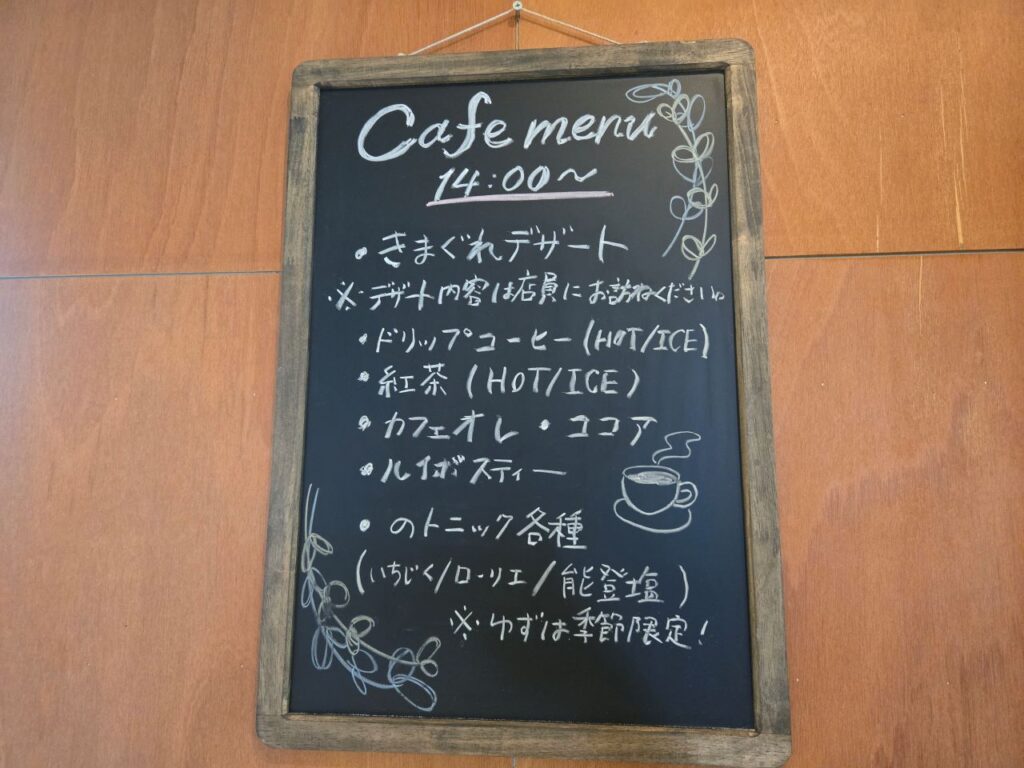 Cafe menu
14:00～
・きまぐれデザート
※デザート内容は店員にお訪ねくださいね
・ドリップコーヒー(HOT/ICE)
・紅茶(HOT/ICE)
・カフェオレ・ココア
・ルイボスティー
・のトニック各種
(いちじく/ローリエ/能登塩)
※ゆずは季節限定!